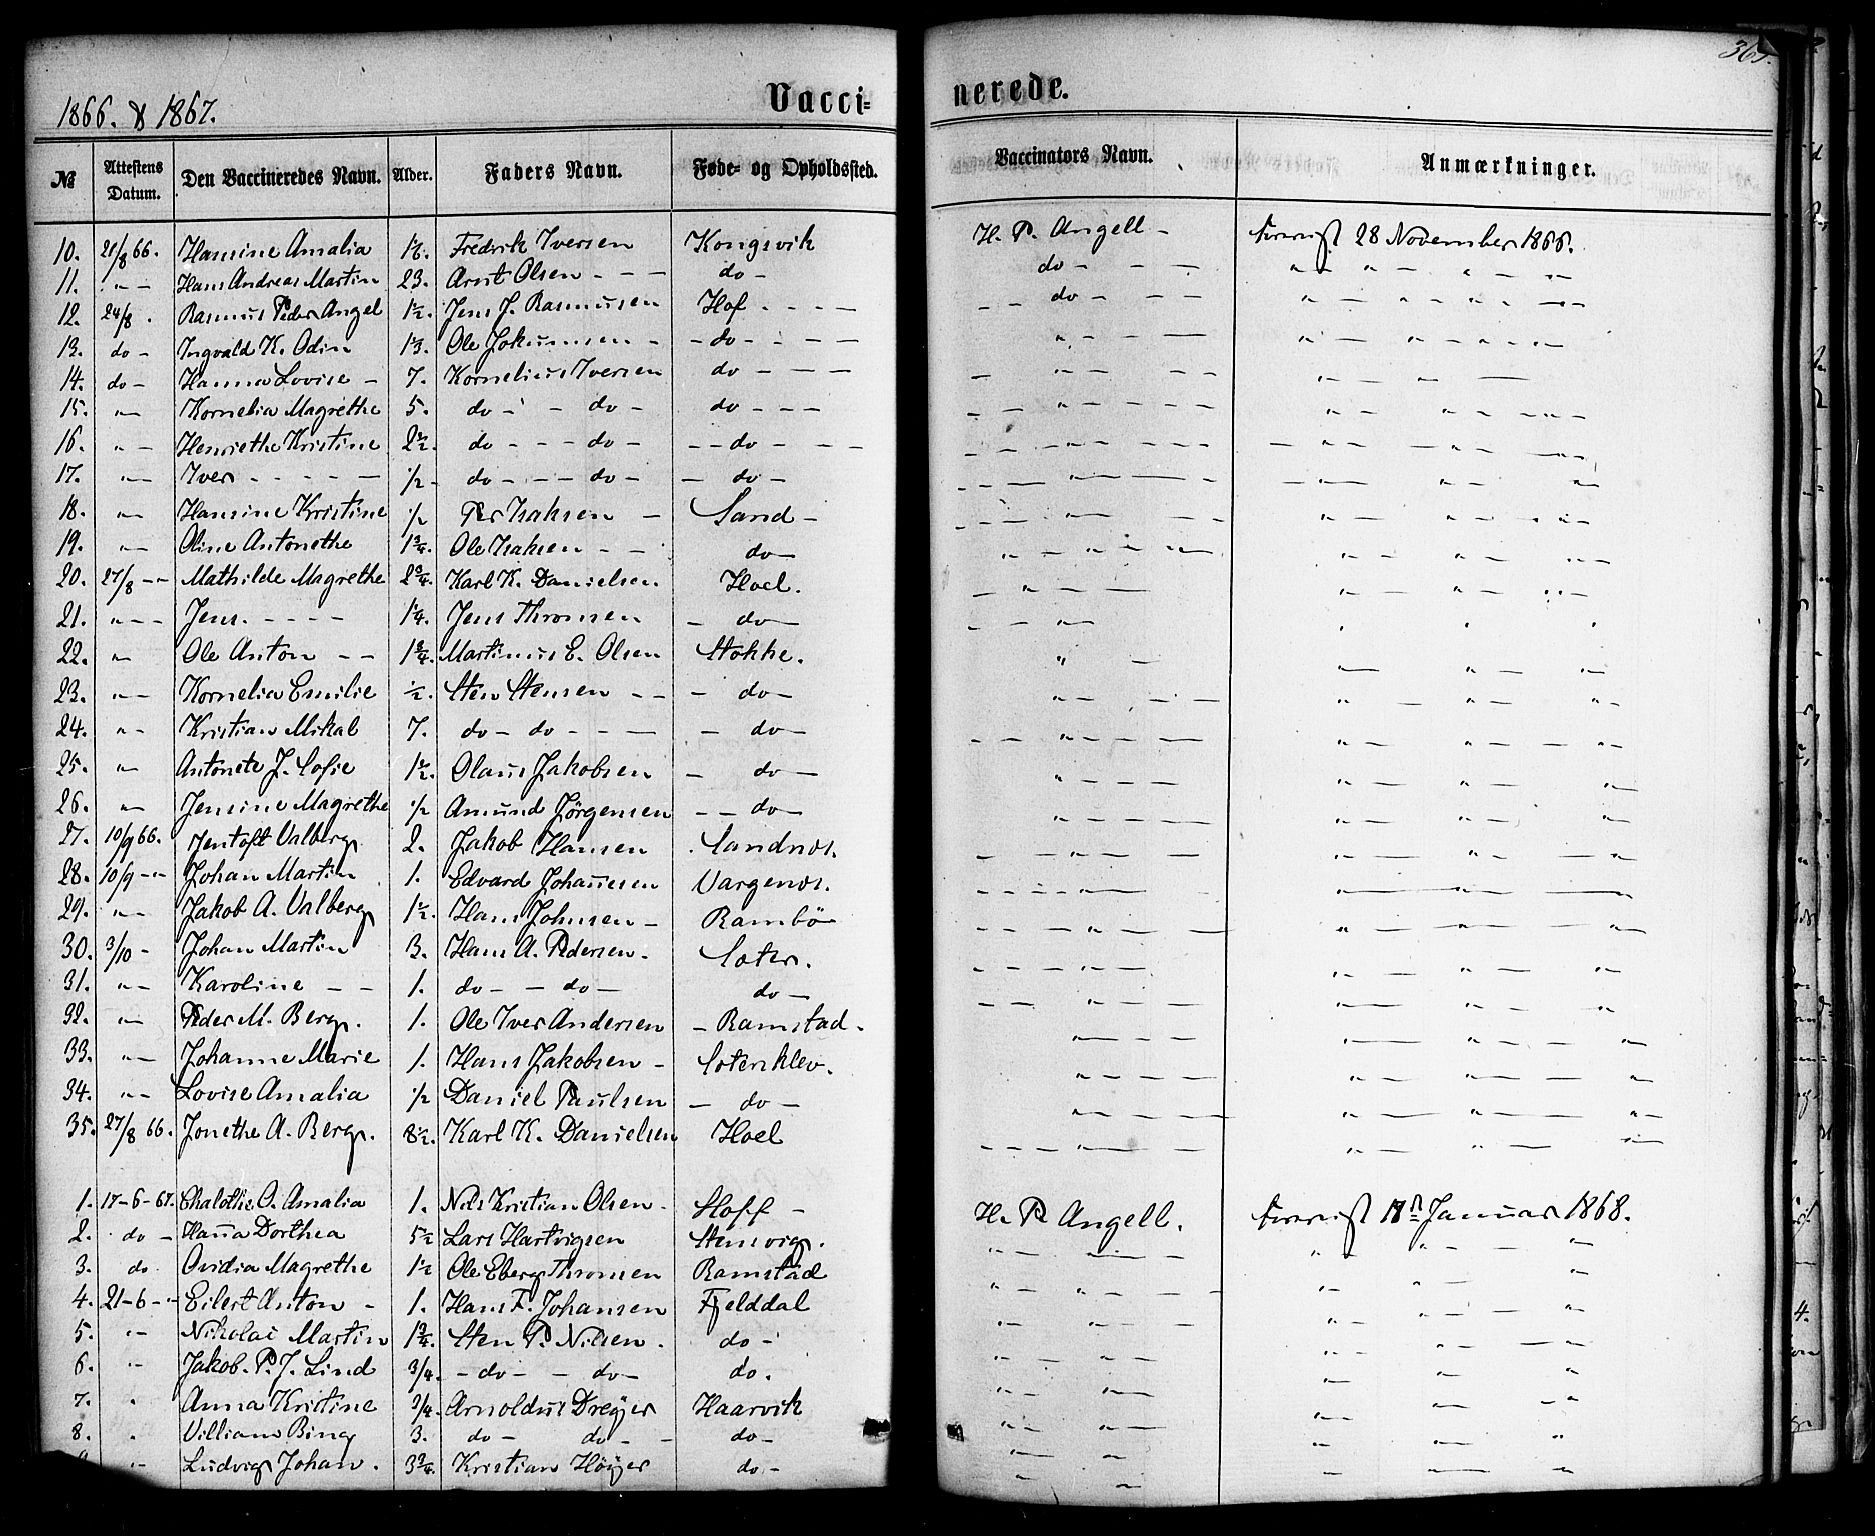 365.
1866. & 1867.
Vacci=
nerede.
№ | Attestens Datum. | Den Vaccineredes Navn. | Alder. | Faders Navn. | Føde- og Opholdssted. | Vaccinators Navn. | Anmærkninger.
10. 21/8 66. Hansine Amalia Fredrik Iversen Kongsvik H. P. Angell - 28 November 1866.
11. " - Hans Andreas Martin Arnt Olsen - - - do - do - - -
12. 24/8 . Rasmus Peder Angel 1½. Jens J. Rasmusen Hof - - - do - - -
13. do - Ingvald K. Odin Ole Jokumsen - - do - - - -
14. do - Hanna Lovise - 7. Kornelius Iversen do - - - -
15. " - Kornelia Magrethe 5. do - - do - do - - -
16. " - Henriethe Kristine 2½. do - - - do - - - do - - -
17. " - Iver - - - - - ½ - do - - - do - - do -
18. " - Hansine Kristine ½ Per Isaksen - Sand -
19. " - Oline Antonethe 1¾. Ole Isaksen - - do -
20. 27/8 - - Mathilde Magrethe 2¾. Karl K. Danielsen. Hoel.
21. " - - Jens. - - - - 1¼. Jens Thromsen - do -
22. " - Ole Anton - - 1¾. Martinus E. Olsen Stokke.
23. " - Kornelia Emilie ½. Sten Stensen - - - do -
24. " - Kristian Mikal 7. do - do - - - - - do -
25. " - Antonete J. Sofie 1½. Olaus Jakobsen - do -
26. " - Jensine Magrethe ½ Amund Jørgensen - - do -
27. 10/9 66. Jentoft Valberg. 2. Jakob Hansen Sandnes.
28. 10/9 - " - Johan Martin 1. Edvard Johannesen Vargenes.
29. " - Jakob A. Valberg 1½. Hans Johnsen - Rambø
30. 3/10 - Johan Martin 3. Hans A. Pedersen. Soter.
31. " - Karoline - - 1. do - - do - do -
32. " - Peder M. Berg. 1. Ole Iver Andersen - Ramstad.
33. " - Johanne Marie 1. Hans Jakobsen - Soterklev.
34. " - Lovise Amalia ½ Daniel Paulsen - do -
35. 27/8 66. Jonethe A. Berg. 8½. Karl K. Danielsen Hoel
1. 17-6-67. Chalothe O. Amalia 1. Nils Kristian Olsen. Hoff - H. P. Angell. 17de Januar 1868.
2. do - Hanna Dorthea 5½ Lars Hartvigsen Stensvig.
3. do. Ovidia Magrethe 1½ Ole Eberg Thromsen Ramstad
4. 21-6- - Eilert Anton - 1. Hans F. Johansen Fjelddal
5. " - Nikolai Martin 1¾. Sten P. Nilsen. do -
6. " - Jakob. P. J. Lind 3/4. - do - - do - do.
7. " Anna Kristine 3/4. Arnoldus Dreyer Haarvik
8. " Villiam Bing 3. do - do - - do -
" - Ludvig Johan. 3¾. Kristian Höyer do -